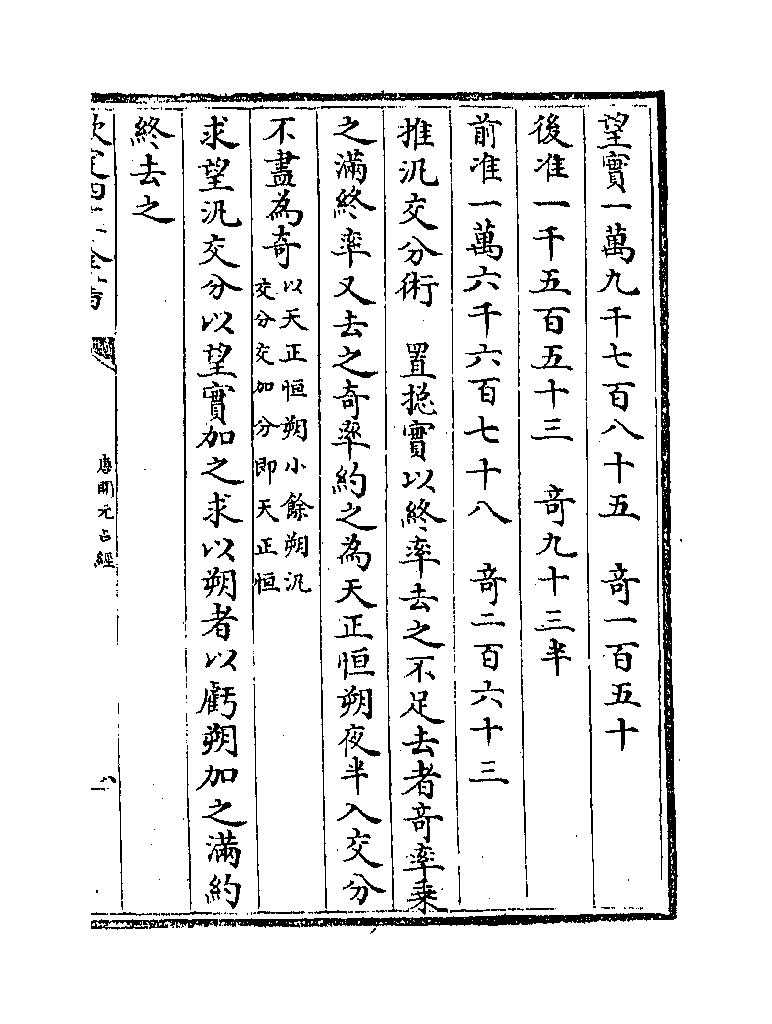 望實一萬九千七百八十五　奇一百五十
後准一千五百五十三　奇九十三半
前准一萬六千六百七十八　奇二百六十三
推汎交分術　置揔實以終率去之不足去者奇率乗
之滿終率又去之奇率約之為天正恒朔夜半入交分
不盡為奇以天正恒朔小餘朔汎
交分交加分即天正恒
求望汎交分以望實加之求以朔者以虧朔加之滿約
終去之
欽定四庫全書
唐開元占經